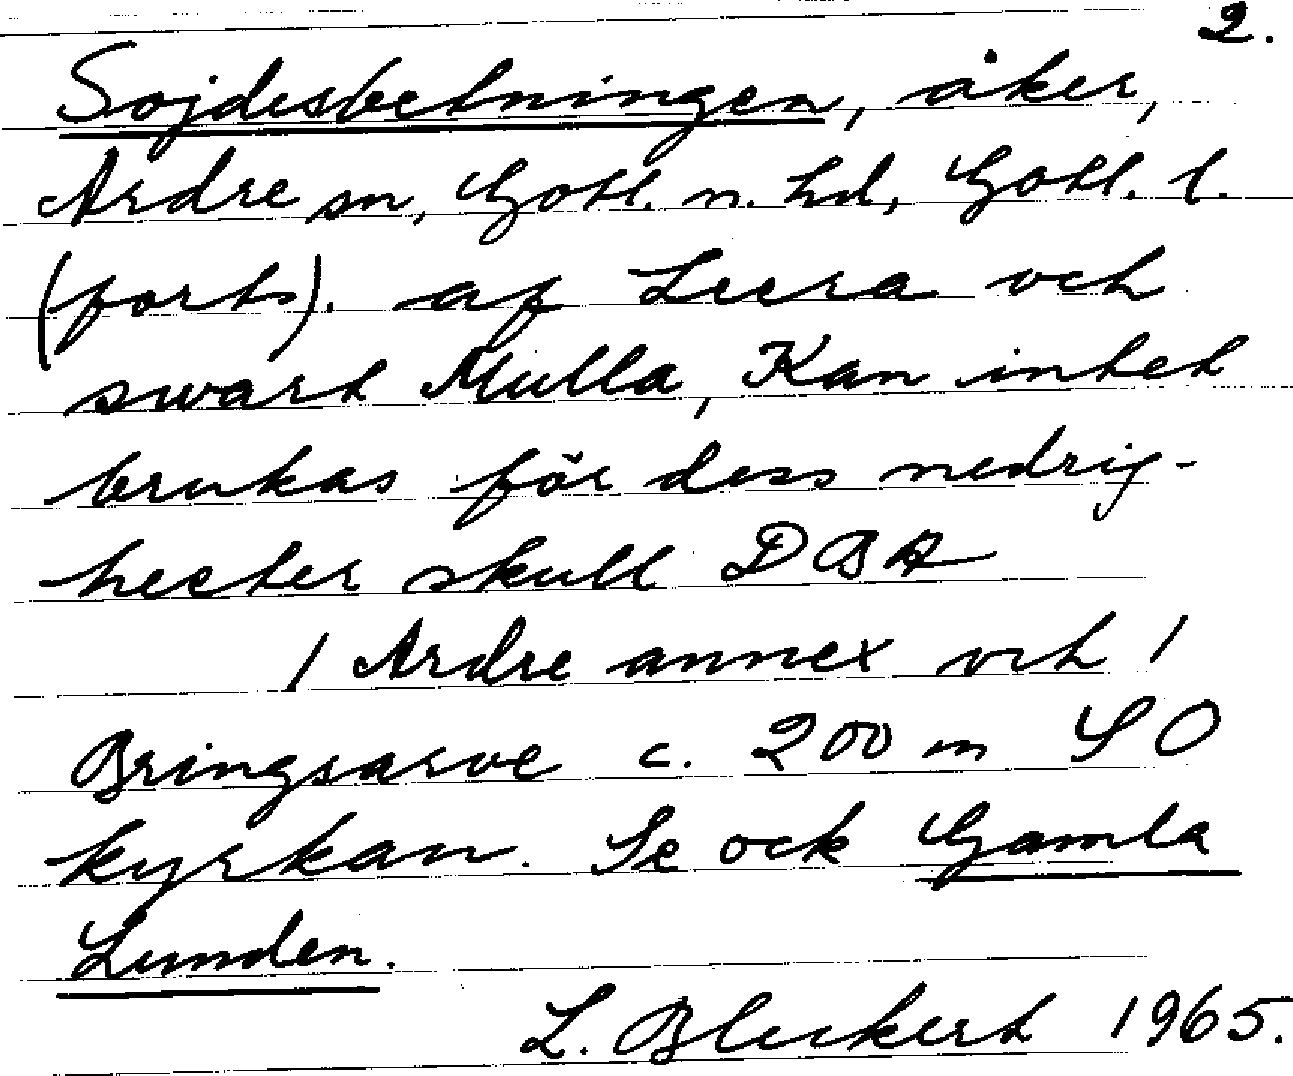 2.
Sojdesbetningen, åker,
Ardre sn, Gotl. n. hd, Gotl. l.
(forts). af Leera och
swart Mulla, Kan intet
brukas för dess nedrig-
heeter skull DBA
/ Ardre annex och /
Bringsarve c. 200 m SO
kyrkan. Se ock Gamla
Lunden.
L. Bleckert 1965.